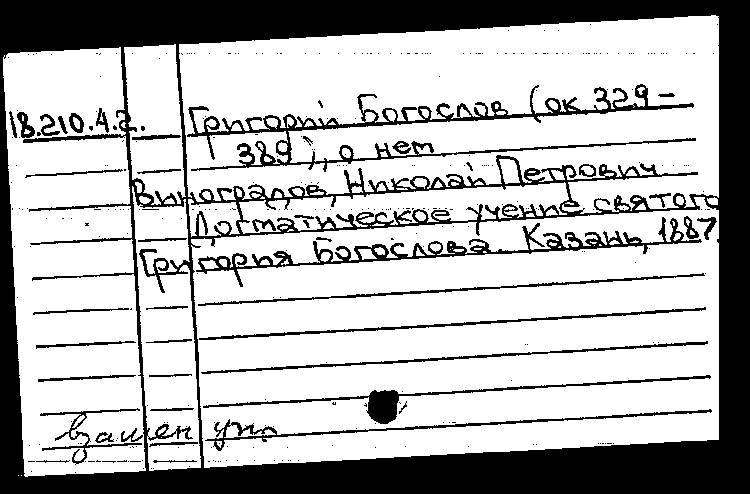 18.210.4.2. Григорий Богослов (ок 329-
389), о нем
Виноградов, Николай Петрович
Догматическое учение святого
Григория Богослова. Казань, 1887.
взамен уп.